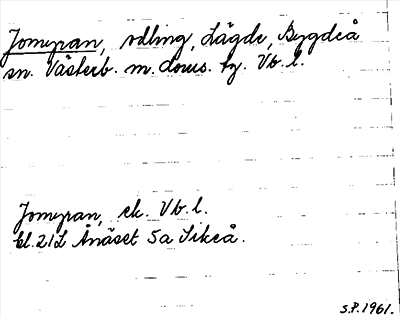 Jomyran, odling, Lägde, Bygdeå
sn. Västerb. m. doms. hy. Vb. l.
Jomyran, ek. Vb. l.
bl. 21L Ånäset 5a Sikeå.
S.P. 1961.